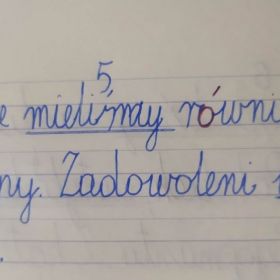 5
e mieliśmy równi
ny. Zadowoleni
.